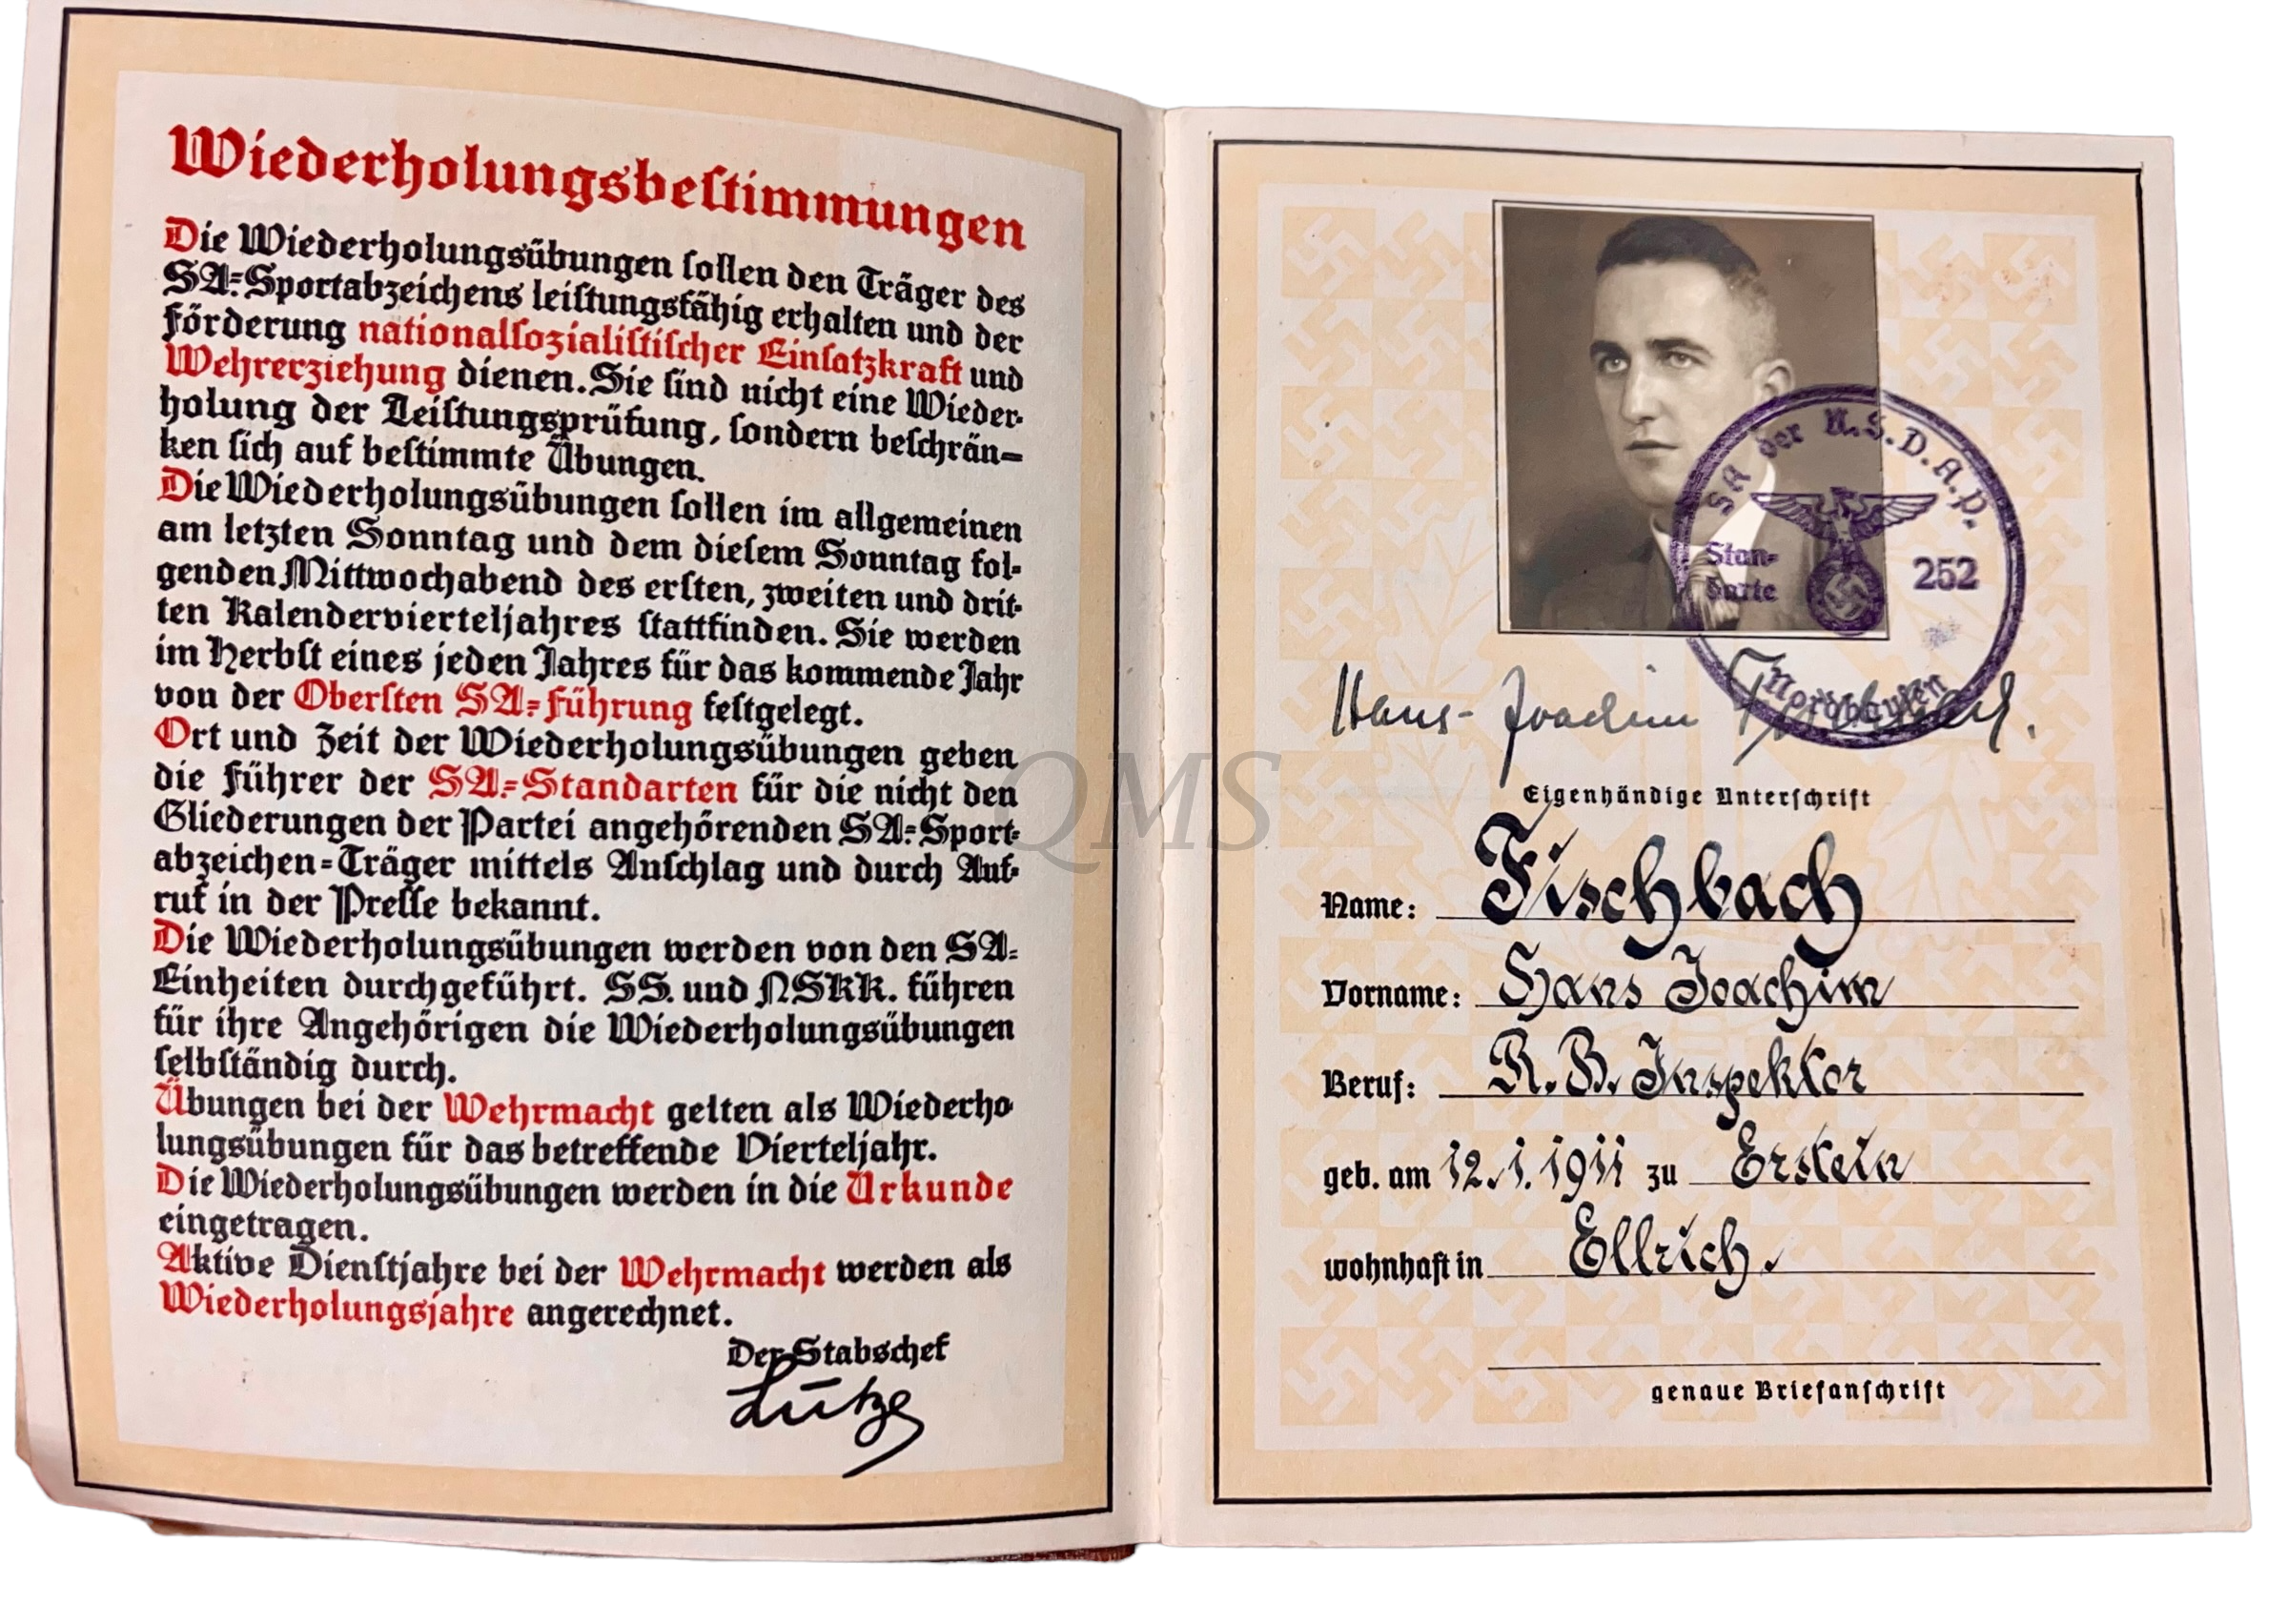 Wiederholungsbestimmungen
Die Wiederholungsübungen sollen den Träger des
SA=Sportabzeichens leistungsfähig erhalten und der
Förderung nationalsozialistischer Einsatzkraft und
Wehrerziehung dienen. Sie sind nicht eine Wieder=
holung der Leistungsprüfung, sondern beschrän=
ken sich auf bestimmte Übungen.
Die Wiederholungsübungen sollen im allgemeinen
am letzten Sonntag und dem diesem Sonntag fol=
genden Mittwochabend des ersten, zweiten und drit=
ten Kalendervierteljahres stattfinden. Sie werden
im Herbst eines jeden Jahres für das kommende Jahr
von der Obersten SA=Führung festgelegt.
Ort und Zeit der Wiederholungsübungen geben
die Führer der SA=Standarten für die nicht den
Gliederungen der Partei angehörenden SA=Sport=
abzeichen=Träger mittels Anschlag und durch Auf=
ruf in der Presse bekannt.
Die Wiederholungsübungen werden von den SA=
Einheiten durchgeführt. SS. und NSKK. führen
für ihre Angehörigen die Wiederholungsübungen
selbständig durch.
Übungen bei der Wehrmacht gelten als Wiederho
lungsübungen für das betreffende Vierteljahr.
Die Wiederholungsübungen werden in die Urkunde
eingetragen.
Aktive Dienstjahre bei der Wehrmacht werden als
Wiederholungsjahre angerechnet.
Der Stabschef
Lutze
QMS
SA der N.S.D.A.P.
Stan=
darte 252
Nordhausen
Hans-Joachim Fischbach.
Eigenhändige Unterschrift
Name: Fischbach
Vorname: Hans Joachim
Beruf: R. B. Inspektor
geb. am 12.1.1911 zu Erstein
wohnhaft in Ellrich.
genaue Briefanschrift